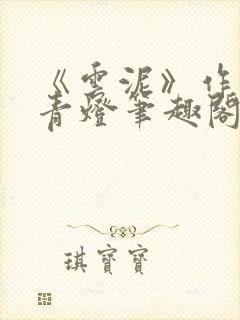 《雲泥》作
青燈筆趣閣
琪寶寶